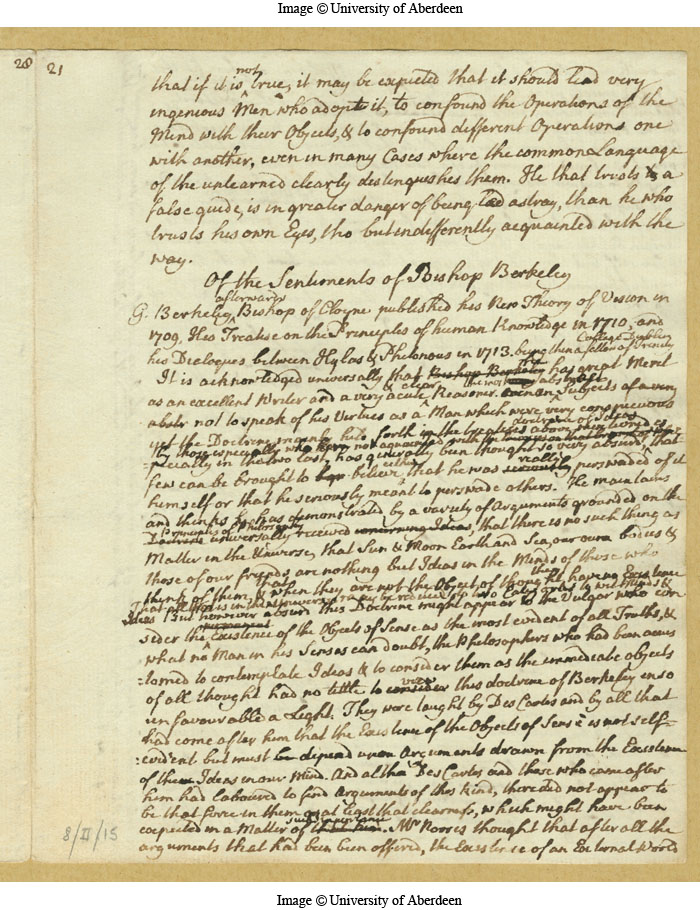 Image © University of Aberdeen
20 21
that if it is not true, it may be expected that it should lead very
ingenious Men who adopt it, to confound the Operations of the
Mind with their Objects, & to confound different Operations one
with another, even in many Cases where the common Language
of the unlearned clearly distinguishes them. He that trusts to a
false guide, is in greater danger of being led astray, than he who
trusts his own Eyes, tho but indifferently acquainted with the
way.
Of the Sentiments of Bishop Berkeley
afterwards
G. Berkeley, Bishop of Cloyne published his New Theory of Vision in
1709. His Treatise on the Principles of human Knowledge in 1710, and
College Dublin
his Dialogues between Hylas & Philonous in 1713. being then a fellow of Trinity
It is acknowledged universally that Bishop Berkeley has great Merit
as an excellent Writer and a very acute & clear Reasoner on the most abstract Subjects
not to speak of his Virtues as a Man which were very conspicuous
yet the Doctrine held forth in the
-pecially in the two last, has generally been thought so very absurd, that
few can be brought to believe either that he was really perswaded of it
himself or that he seriously meant to perswade others. He maintains
and thinks he has demonstrated by a variety of Arguments grounded on the
Principles of Philosophy
universally received concerning Ideas, that there is no such thing as
Matter in the Universe, that Sun & Moon Earth and Sea, our own bodies &
those of our friends, are nothing but Ideas in the Minds of those who
think of them, & when they are not the Object of thought having Existence
That all that is in the universe may be reduced to two Categories to wit Minds &
Ideas But however absurd this Doctrine might appear to the Vulgar who con
sider the Existence of the Objects of Sense as the most evident of all Truths, &
what no Man in his Senses can doubt, the Philosophers who had been accus
-tomed to contemplate Ideas & to consider them as the immediate objects
of all thought had no title to view this doctrine of Berkeley in so
unfavourable a Light. They were taught by Des Cartes and by all that
had come after him that the Existence of the Objects of Sense is not self-
evident but must be depend upon Arguments drawn from the Existence
of the Ideas in our Mind. And altho Des Cartes and those who came after
him had laboured to find Arguments of this kind, there did not appear to
be that force in them or at least that clearness, which might have been
expected in a Matter of such importance. Mr Norris thought that after all the
arguments that had been been offered, the Existence of an External World
8/II/15
Image © University of Aberdeen